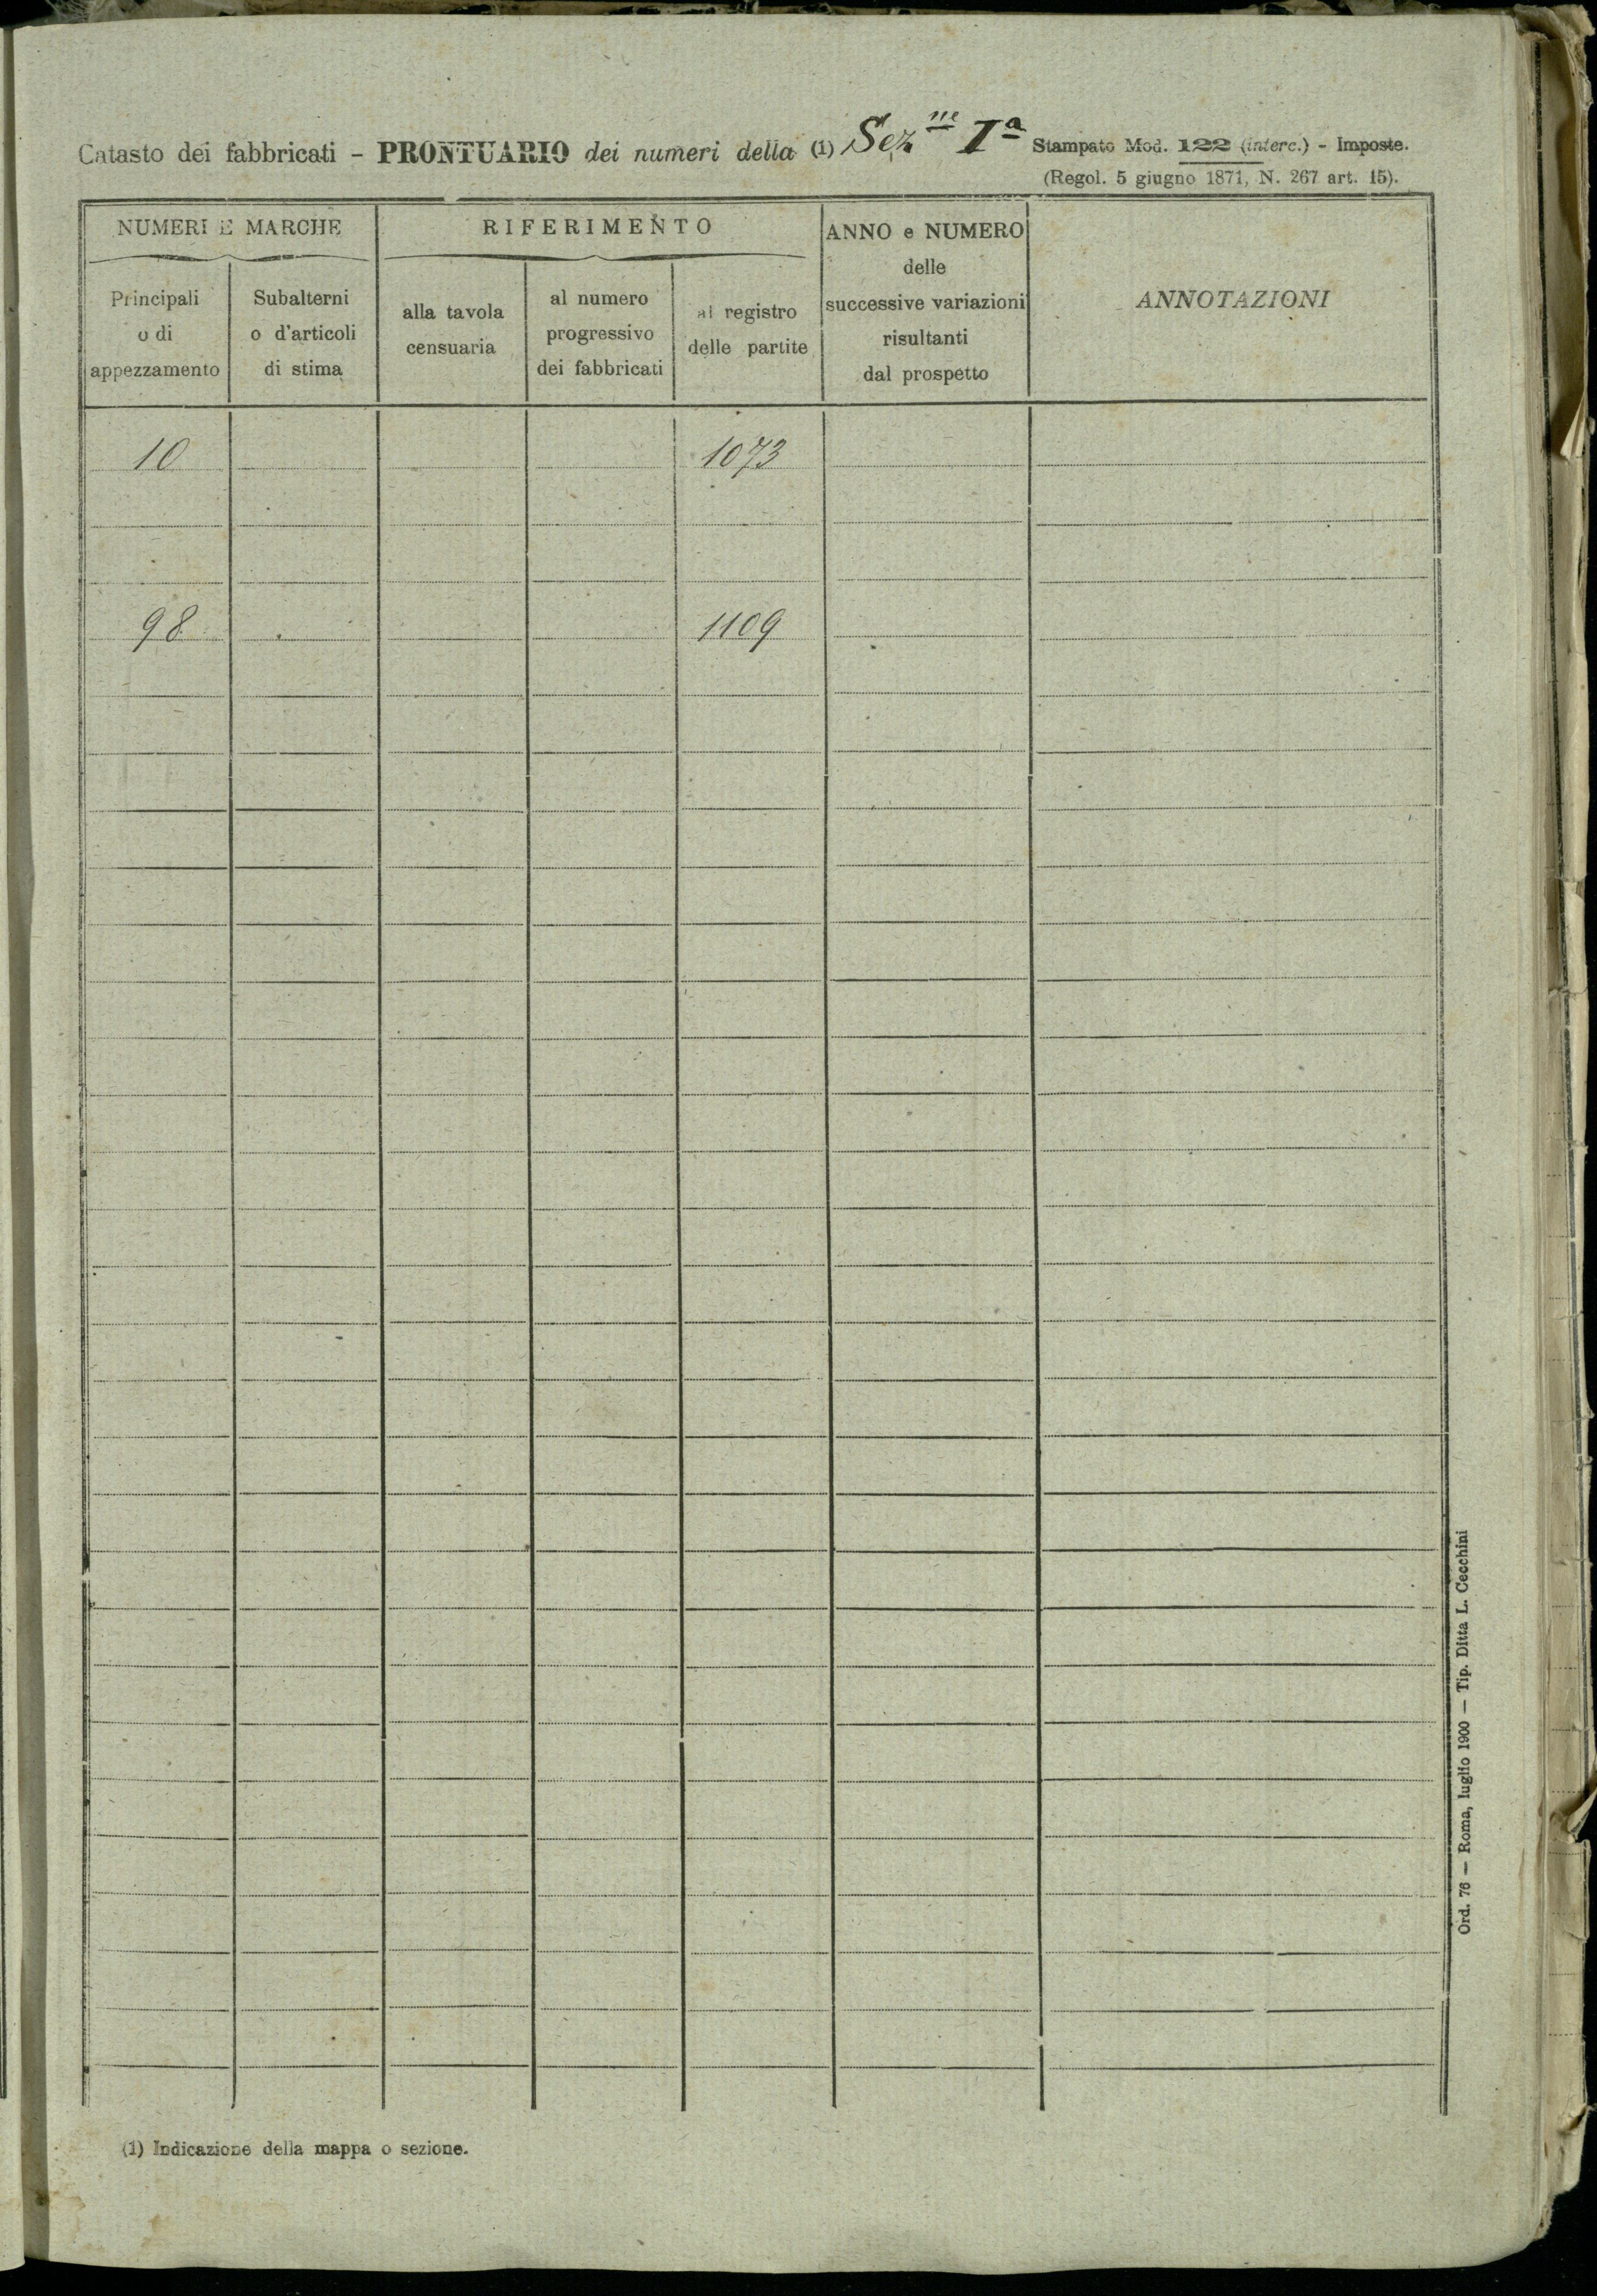 Catasto dei fabbricati - PRONTUARIO dei numeri della (1) Sez.ne Ia Stampato Mod. 122 (interc.) - Imposte.
(Regol. 5 giugno 1871, N. 267 art. 15).
NUMERI E MARCHE
Principali
o di
appezzamento
Subalterni
o d'articoli
di stima
RIFERIMENTO
alla tavola
censuaria
al numero
progressivo
dei fabbricati
al registro
delle partite
ANNO e NUMERO
delle
successive variazioni
risultanti
dal prospetto
ANNOTAZIONI
10 1073
98 1109
(1) Indicazione della mappa o sezione.
Ord. 76 — Roma, luglio 1900 — Tip. Ditta L. Cecchini